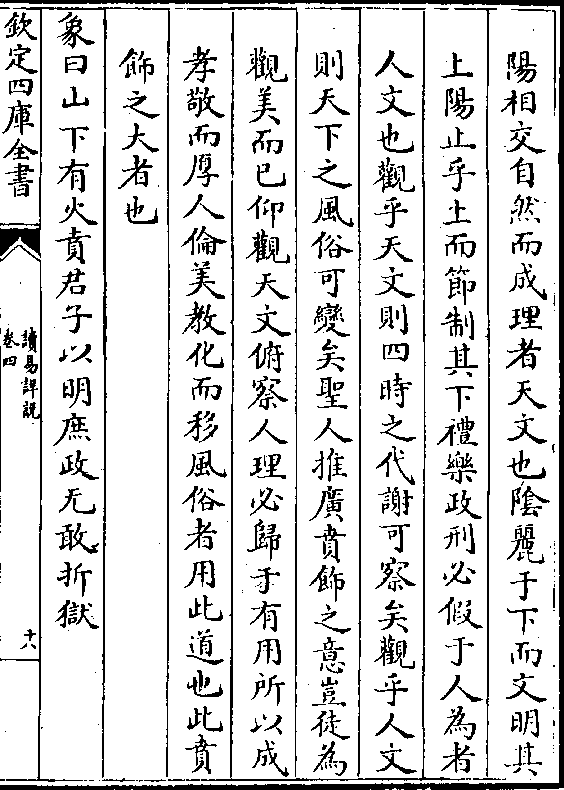 陽相交自然而成理者天文也陰麗于下而文明其
上陽止乎上而節制其下禮樂政刑必假于人為者
人文也觀乎天文則四時之代謝可察矣觀乎人文
則天下之風俗可變矣聖人推廣賁飾之意豈徒為
觀美而已仰觀天文俯察人理必歸于有用所以成
孝敬而厚人倫美教化而移風俗者用此道也此賁
飾之大者也
象曰山下有火賁君子以明庶政无敢折獄
欽定四庫全書
讀易詳說
卷四
十八